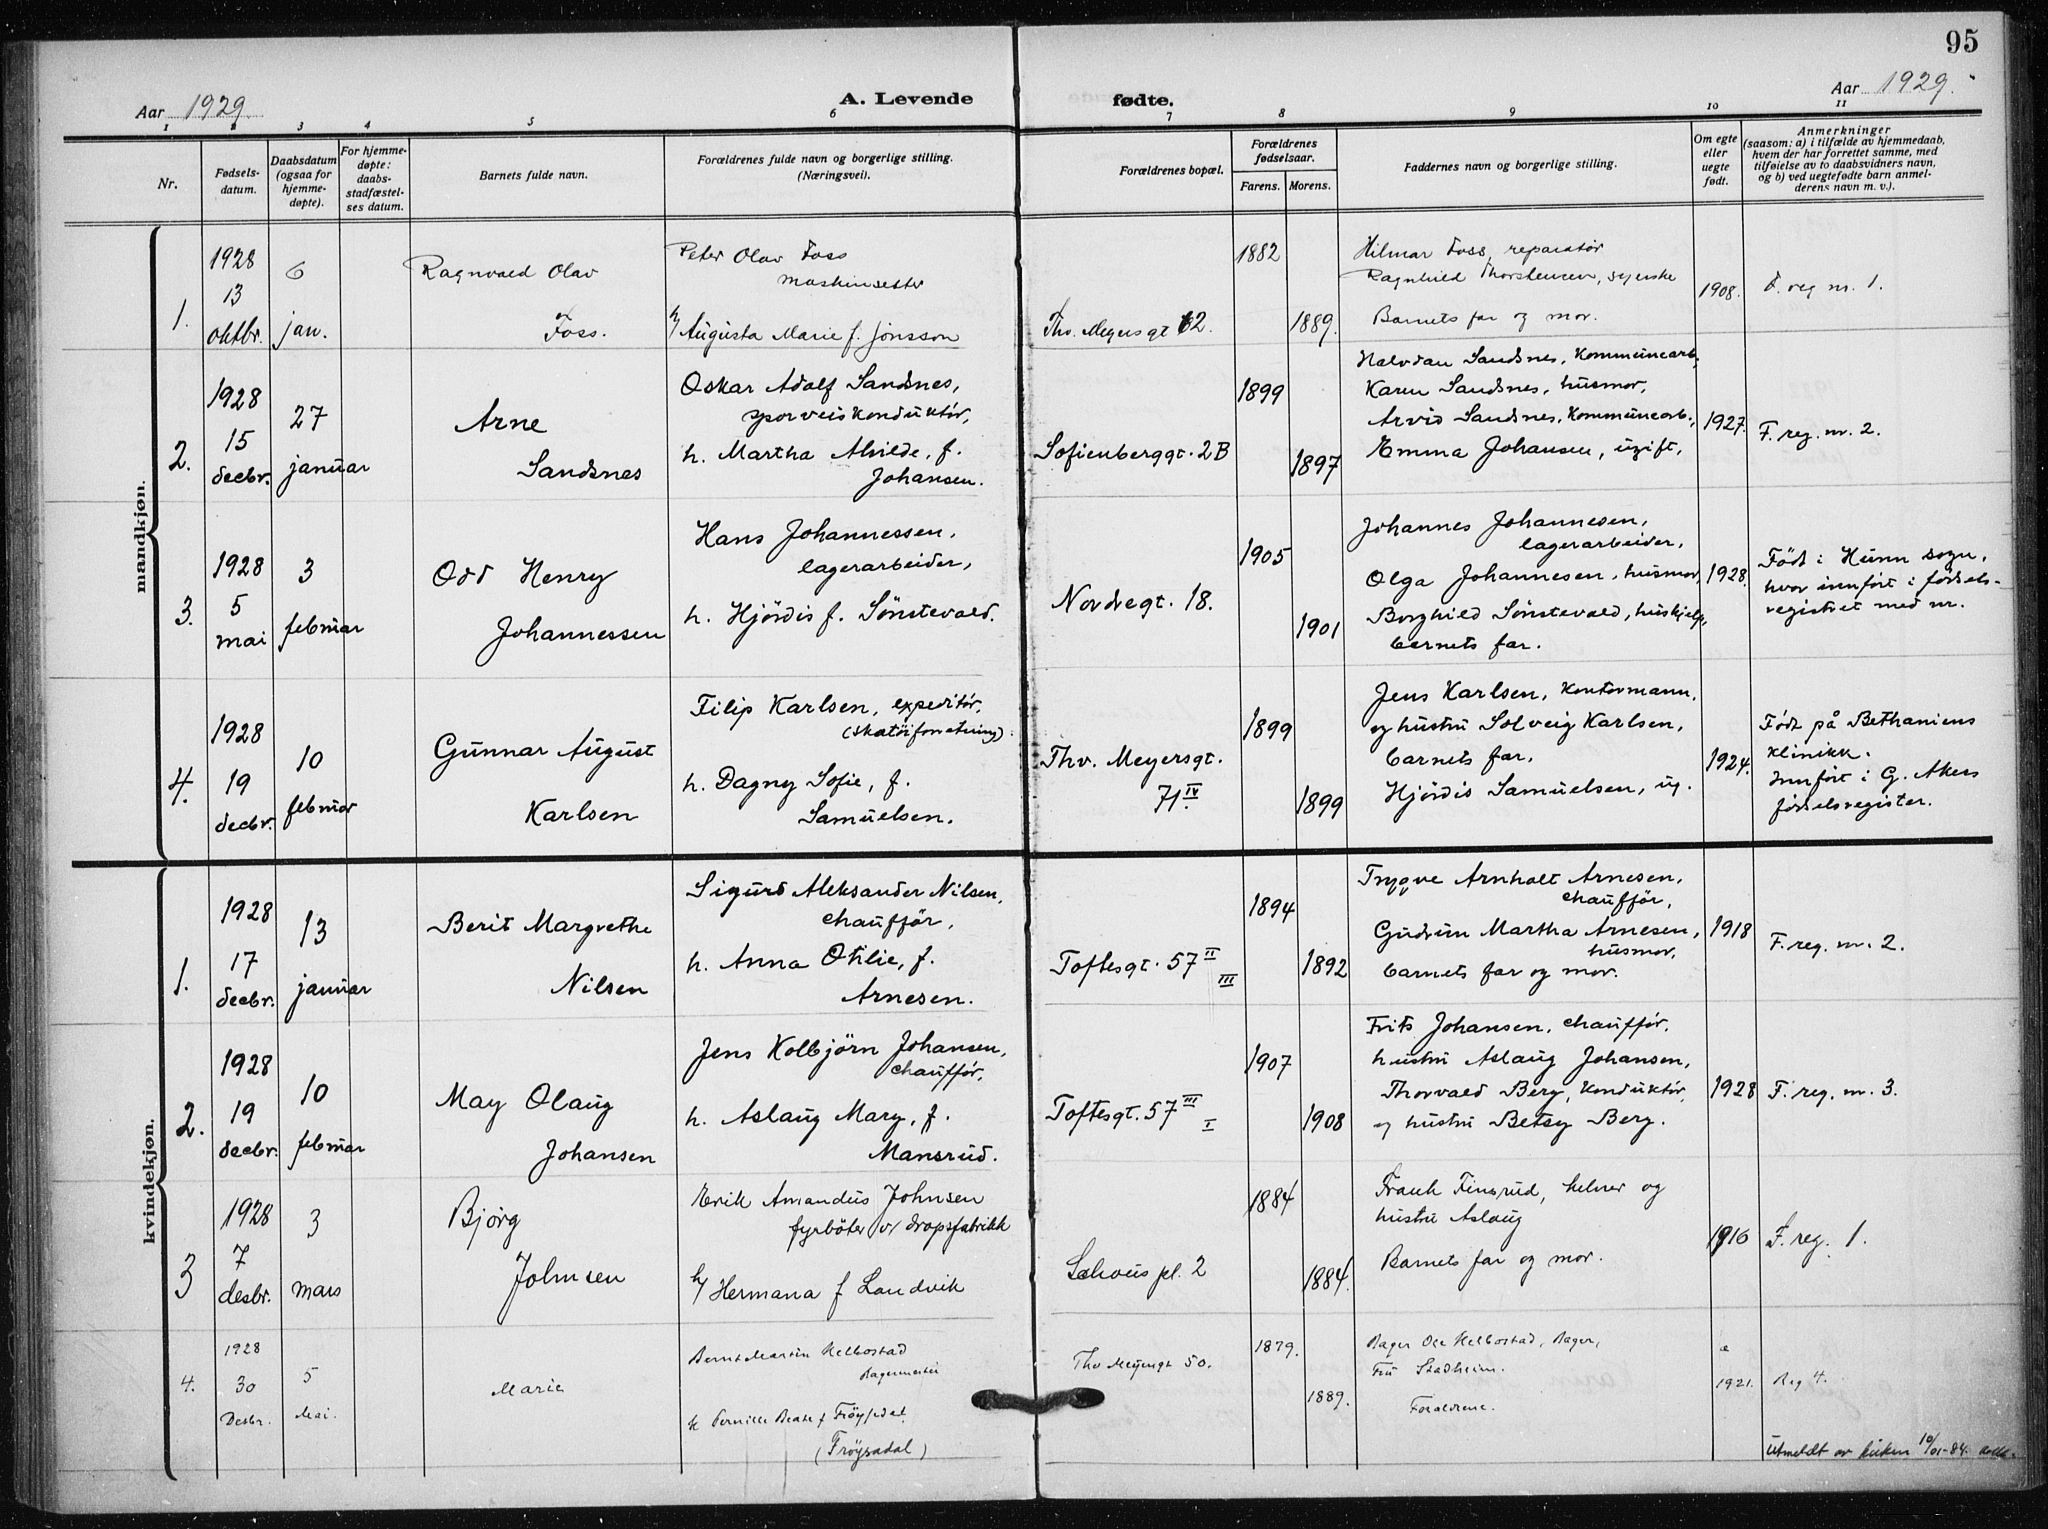 95
Aar 1929
A. Levende
fødte.
Aar 1929.
1 2 3 4 5 6 7 8 9 10 11
Nr.
Fødsels-
datum.
Daabsdatum
(ogsaa for
hjemme-
døpte).
For hjemme-
døpte:
daabs-
stadfæstel-
ses datum.
Barnets fulde navn.
Forældrenes fulde navn og borgerlige stilling.
(Næringsvei).
Forældrenes bopæl.
Forældrenes
fødselsaar.
Farens. Morens.
Faddernes navn og borgerlige stilling.
Om egte
eller
uegte
født.
Anmerkninger
(saasom: a) i tilfælde av hjemmedaab,
hvem der har forrettet samme, med
tilføielse av to daabsvidners navn,
og b) ved uegtefødte barn anmel-
derens navn m. v.).
mandkjøn.
1.
1928
13
oktbr.
6
jan.
Ragnvald Olav
Foss.
Peter Olav Foss
Maskinsetter
h/ Augusta Marie f. Jonsson
Thv. Meyersgt 62.
1882
1889.
Hilmar Foss, reparatør
Ragnhild Thorstensen, syerske
Barnets far og mor.
1908.
F. reg nr. 1.
2.
1928
15
decbr.
27
januar
Arne
Sandsnes
Oskar Adolf Sandsnes,
sporveiskonduktør,
h. Martha Alvilde, f.
Johansen.
Sofienberggt. 2B
1899
1897
Halvdan Sandsnes, Kommunearb.,
Karen Sandsnes, husmor,
Arvid Sandsnes, Kommunearb.,
Emma Johansen, ugift,
1927.
F. reg. nr. 2.
3.
1928
5
mai
3
februar
Odd Henry
Johannessen
Hans Johannessen,
lagerarbeider,
h. Hjördis f. Sönstevald.
Nordregt. 18.
1905
1901
Johannes Johannesen,
lagerarbeider,
Olga Johannesen, husmor,
Borghild Sönstevald, huskjelp,
barnets far.
1928.
Födt i Hunn sogn,
hvor innfört i födsels-
registret med nr.
4.
1928
19
decbr.
10
februar
Gunnar August
Karlsen
Filip Karlsen, expeditör,
(skotöiforretning).
h. Dagny Sofie, f.
Samuelsen.
Thv. Meyersgt.
71 IV
1899
1899
Jens Karlsen, Kontormann,
og hustru Solveig Karlsen,
barnets far,
Hjördis Samuelsen, ug.
1924.
Födt på Bethaniens
klinikk.
Innfört i G. Akers
födselsregister.
kvindekjøn.
1.
1928
17
decbr.
13
januar
Berit Margrethe
Nilsen
Sigurd Aleksander Nilsen,
chaufför,
h. Anna Otilie, f.
Arnesen.
Toftesgt. 57 II
III
1894
1892
Trygve Arnholt Arnesen,
chaufför,
Gudrun Martha Arnesen,
husmor,
barnets far og mor.
1918
F. reg. nr. 2.
2.
1928
19
decbr.
10
februar
May Olaug
Johansen
Jens Kolbjörn Johansen,
chaufför,
h. Aslaug Mary, f.
Mansrud.
Toftesgt. 57 III
I
1907
1908
Frits Johansen, chauffør,
hustru Aslaug Johansen,
Thorvald Berg, Konduktör,
og hustru Betsy Berg.
1928
F. reg. nr. 3.
3
1928
7
desbr.
3
mars
Bjørg
Johnsen
Erik Amandus Johnsen
fyrbøter v/ dropsfabrikk
h/ Hermana f Landvik
Schous pl. 2
1884
1884.
Frank Finsrud, kelner og
hustru Aslaug
Barnets far og mor.
1910
F. reg. 1.
4.
1928
30
Desbr.
5
Mai.
Marie
Bernt Martin Helbostad
Bagermester
h Pernille Beate f Frøysedal
(Frøysadal)
Thv Meyersgt 50.
1879.
1889.
Bager Ole Helbostad, Bager,
Fru Stadheim.
Foreldrene.
e
1921.
Reg 4.
Utmeldt av kirken 10/01-84.